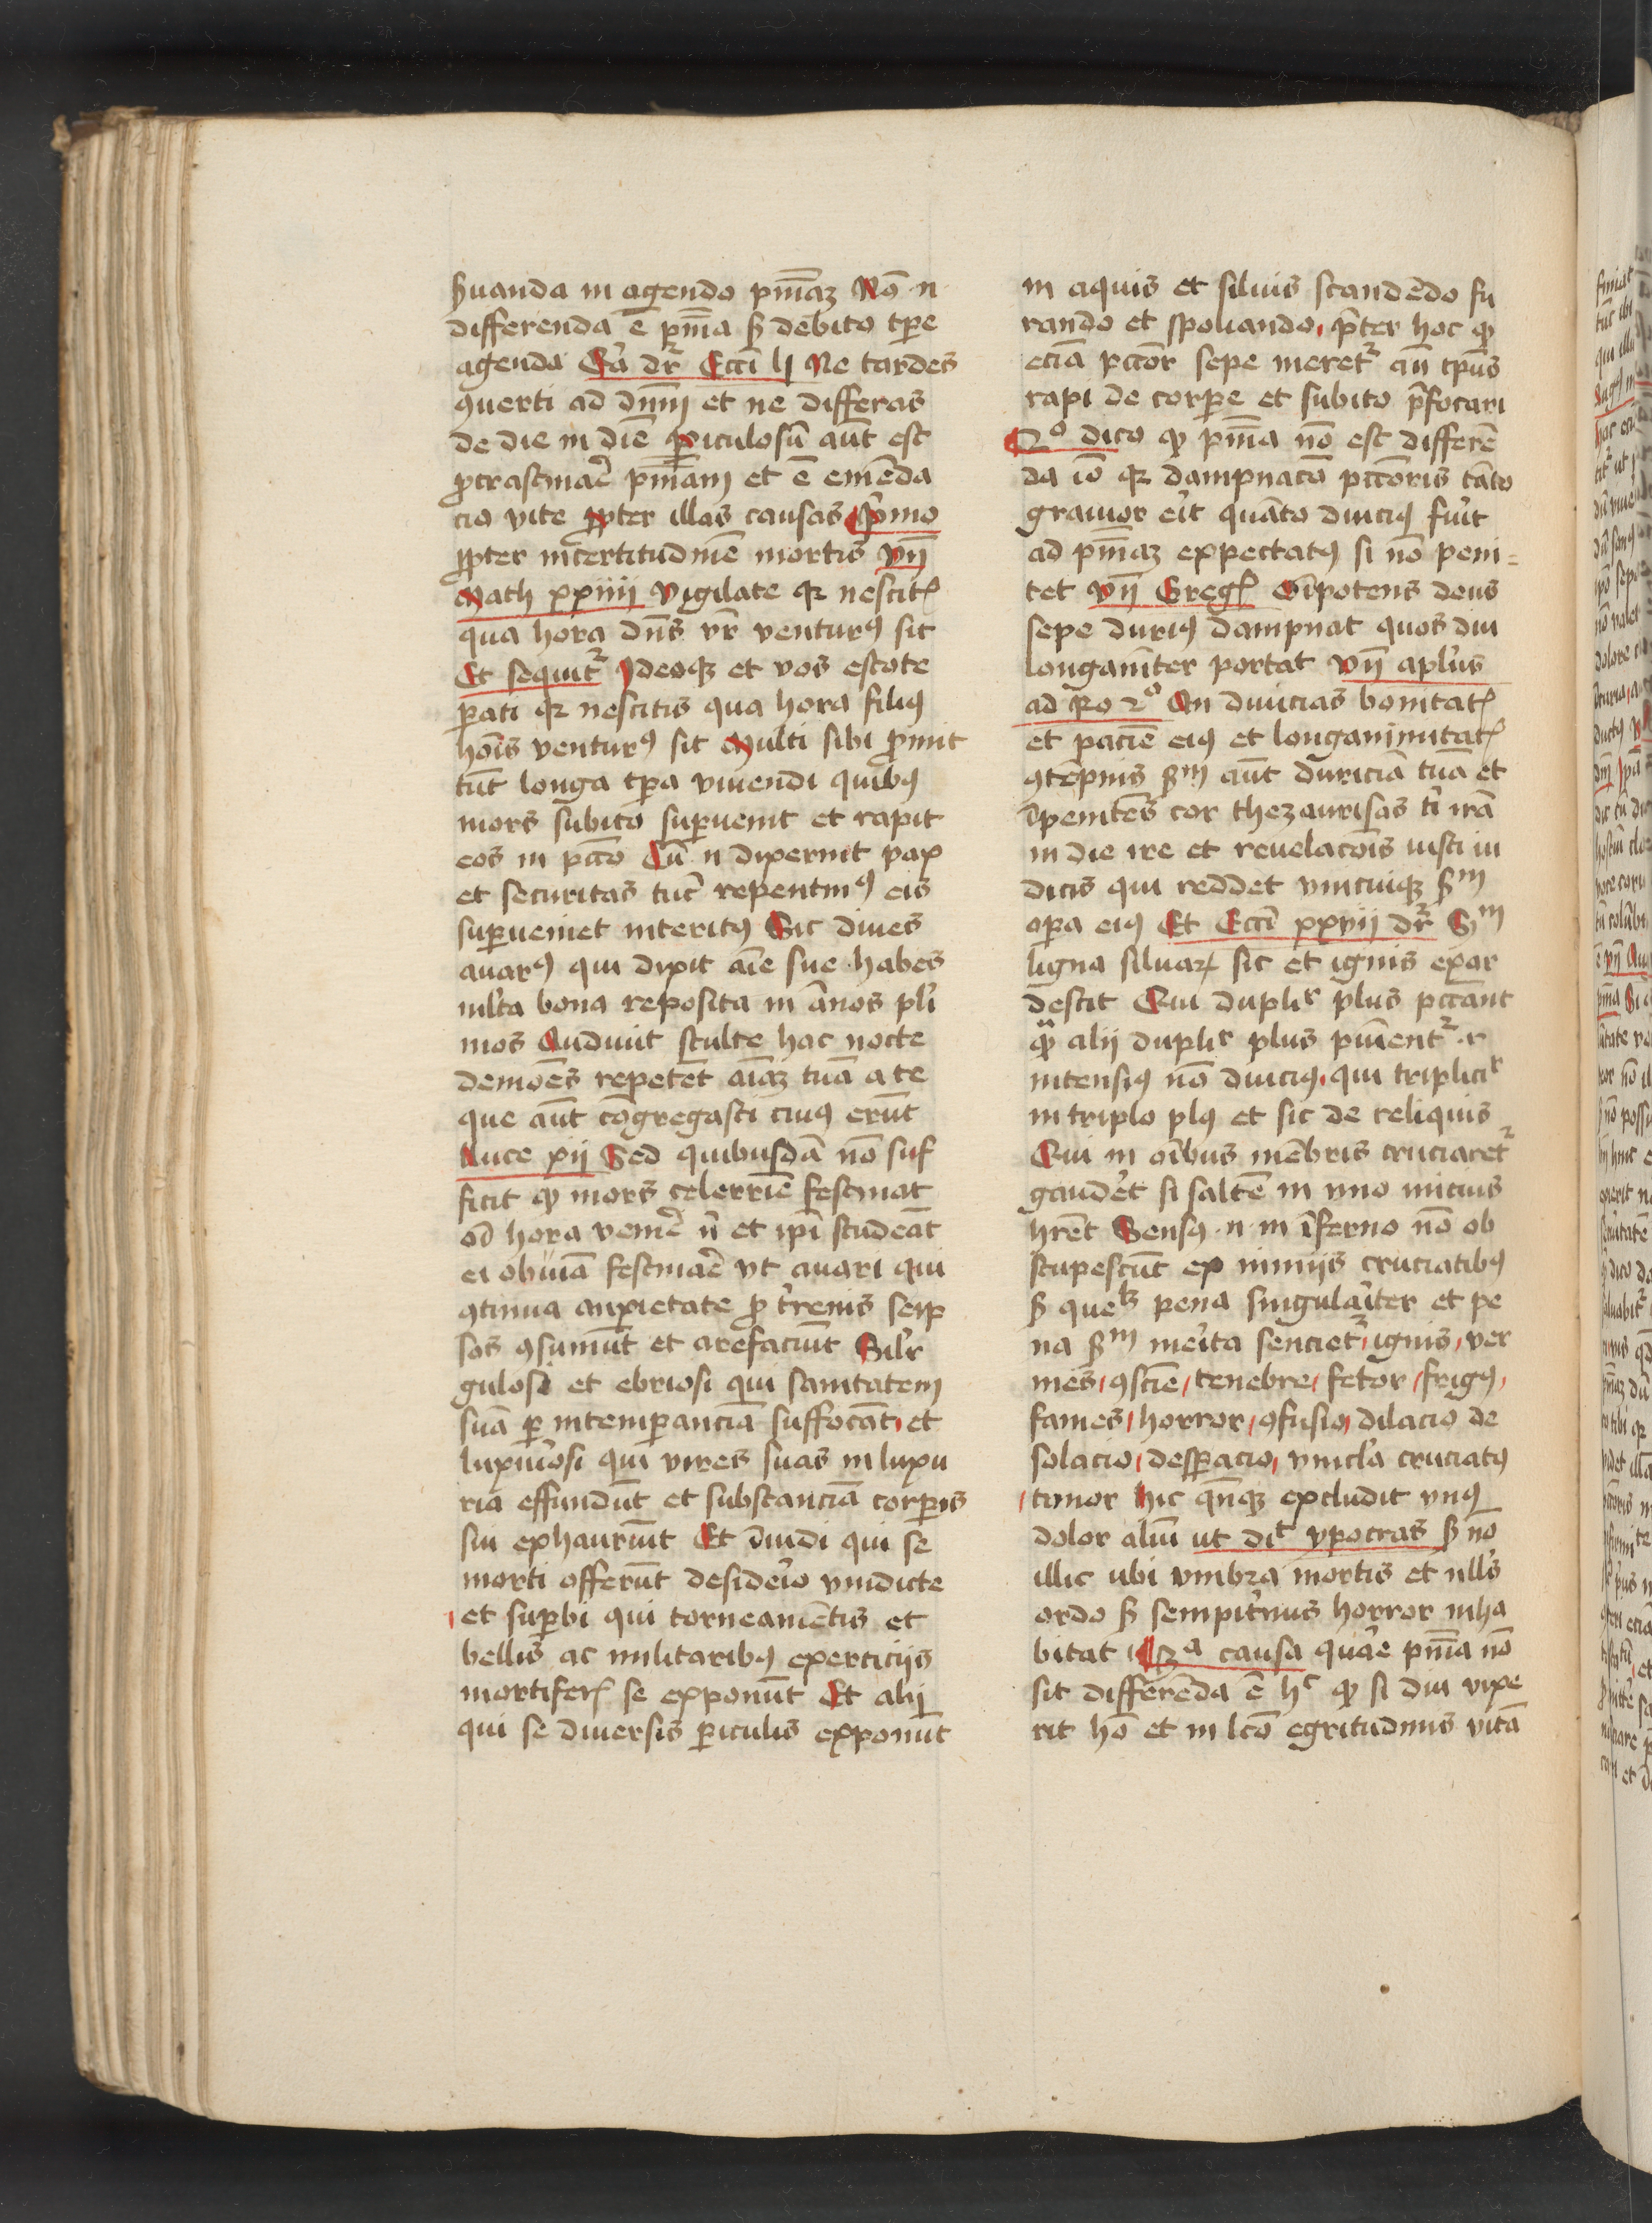 ẜuanda in agendo pn̄iaꝫ Nō .n.
differenda ē pn̄ia ẜ debito tꝑe
agenda Eccī lj Ne tardes
ꝯuerti ad dnm̄ et ne differas
de die in diē ꝑiculosū aūt est
ꝓcrastinar̄ pn̄iam et ē emēda
cio vite ꝓpter illas causas p̄mo
ꝓpter incertitudinē mortis vn̄
Math xxiiii Vigilate qꝛ nescitꝭ
qua hora dn̄s vr̄ venturꝰ sit
Et sequit̄ Ideoqꝫ et vos estote
ꝑati qꝛ nescitis qua hora filiꝰ
hoīs venturꝰ sit Multi sibi ꝓmit
tūt longa tꝑa viuendi quibꝰ
mors subito suꝑuenit et rapit
eos in pctō Cū .n. dixerint pax
et securitas tūc repentinꝰ eis
suꝑueniet interitꝰ Sic diues
auarꝰ qui dixit aīe sue habes
mlta bona reposita in ānos pl̄i
mos Audiuit stulte hac nocte
demōes repetēt aīaꝫ tuā a te
que aūt cōgregasti cuiꝰ erūt
Luce xii Sed quibusdā nō suf
ficit ꝙ mors celerrīe festinat
ad hora venir̄ n̄ et ip̄i studeāt
ei obuiā festinar̄ vt auari qui
ꝯtinua anxietate ꝓ t̄renis seip
sos ꝯsumūt et arefaciūt Silr̄
gulosi et ebriosi qui sanitatem
suā ꝑ intemꝑanciā suffocāt et
luxuriosi qui vires suas in luxu
ria effundūt et substanciā corꝑis
sui exhauriūt Et īuidi qui se
morti offerūt desiderio vindicte
et suꝑbi qui torneamētis et
bellis ac militaribꝰ exerticijs
mortiferꝭ se exponūt Et alij
qui se diuersis ꝑiculis exponūt
in aquis et siluis scandēdo fu
rando et spoliando p̄ter hoc ꝙ
eciā pctōr sepe meret̄ an̄ tp̄us
rapi de corꝑe et subito p̄focari
2º dico ꝙ pn̄ia nō est differē
da iō qꝛ dampnacō pctōris tāto
grauior er̄it quāto diuciꝰ fuīt
ad pn̄iaꝫ expectatꝰ si nō peni-
tet vn̄ Gregꝭ Oīpotens deus
sepe duriꝰ dampnat quos diu
longanīter portat vn̄ apl̄us
ad Ro 2º An diuicias bonitatꝭ
et paciē eiꝰ et longanimitatꝭ
ꝯtēpnis ẜm aūt duriciā tuā et
īpenitēs cor thezaurisas tī irā
in die ire et reuelacōis iusti iu
dicis qui reddet vnicuiqꝫ ẜm
oꝑa eiꝰ Et Eccī xxviii dr̄ Sm
ligna siluaꝝ sic et ignis exar
descit Qui duplir plus pccānt
ꝙ̄ alij duplir plus puīent̄ .i.
intensiꝰ nō diuciꝰ qui triplicir
in triplo plꝰ et sic de reliquis
Qui in oībus mēbris cruciaret̄
gauderet si saltē in vno mitius
hrēt Sensꝰ .n. in īferno nō ob
stupescūt ex nimijs cruciatibꝰ
ẜ quelꝫ pena singulariter et pe
na ẜm merita sentiet̄ ignis ver
mes ꝯsciē tenebre fetor frigꝰ
fames horror ꝯfusio dilacio de
solacio desꝑacio vincl̄a cruciatꝰ
timor hic qn̄qꝫ excludit vnꝰ
dolor aliū ut dit ypocras ẜ nō
illic ubi vmbra mortis et nllꝰs
ordo ẜ sempiternus horror inha
bitat 3a causa quare pn̄ia nō
sit differēda ē hc ꝙ si diu vixe
rit hō et in lcō egritudinis vitā